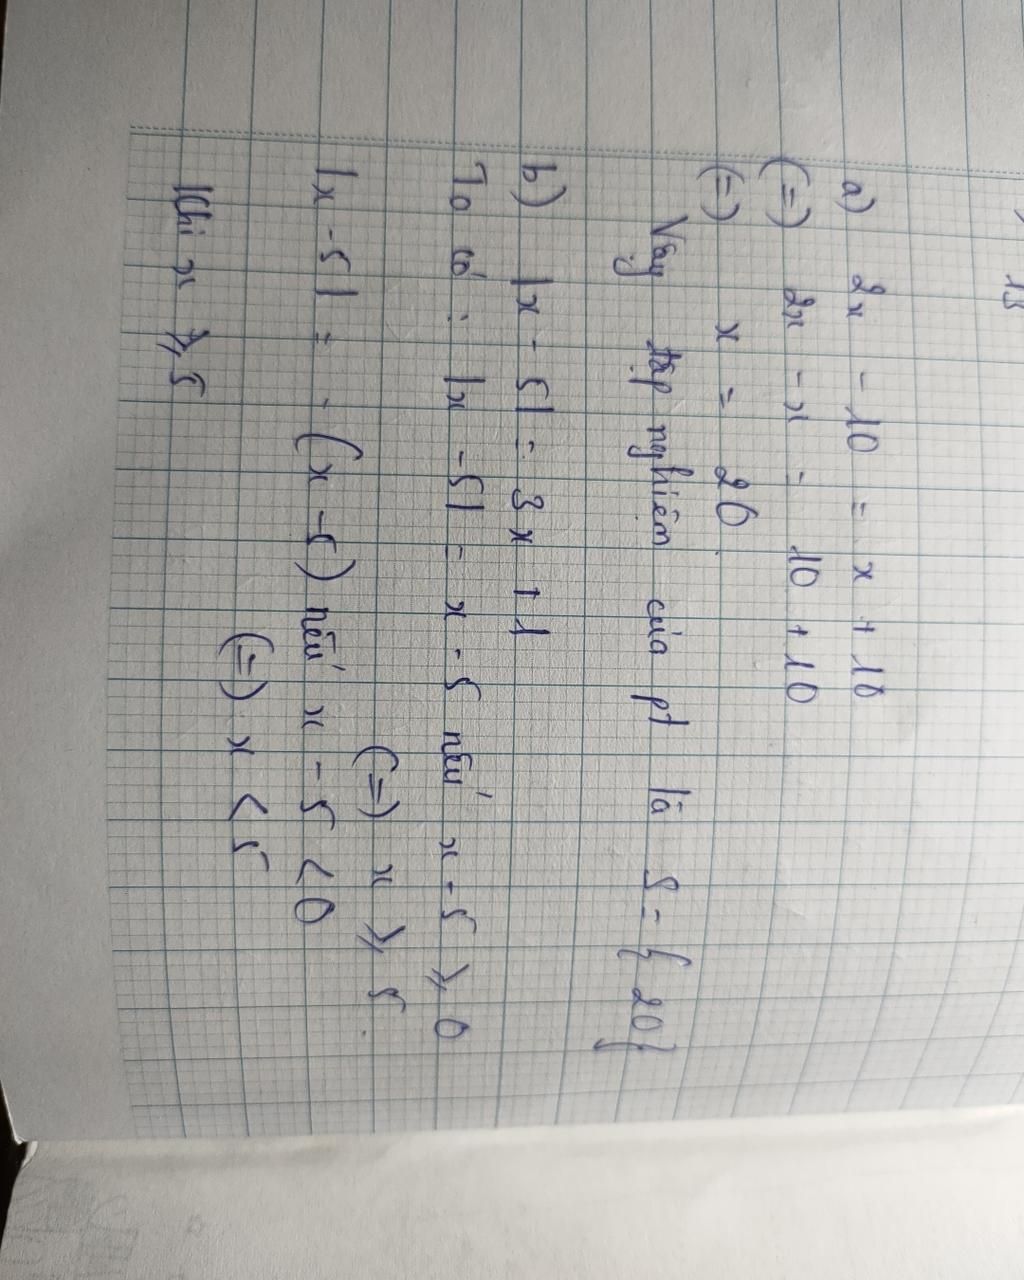 13
a) 2x - 10 = x + 10
(=) 2x - x = 10 + 10
(=) x = 20.
Vậy tập nghiệm của pt là S = { 20 }
b) |x - 5| = 3x + 1
Ta có : |x - 5| = x - 5 nếu x - 5 ⩾ 0
(=) x ⩾ 5.
|x - 5| = - (x - 5) nếu x - 5 < 0
(=) x < 5
Khi x ⩾ 5